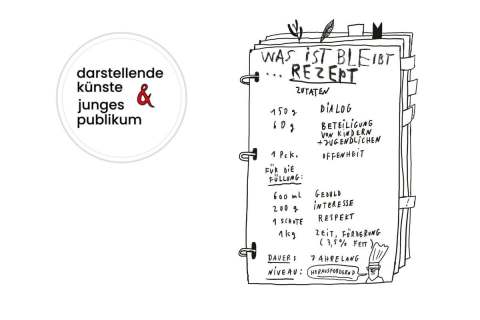 darstellende
künste &
junges
publikum
WAS IST BLEIBT
... REZEPT
ZUTATEN
150 g DIALOG
60 g BETEILIGUNG
VON KINDERN
+ JUGENDLICHEN
1 PCK. OFFENHEIT
FÜR DIE
FÜLLUNG:
600 ml GEDULD
200 g INTERESSE
1 SCHOTE RESPEKT
1 kg ZEIT, FÖRDERUNG
(3,5% FETT)
DAUER: JAHRELANG
NIVEAU: HERAUSFORDERND